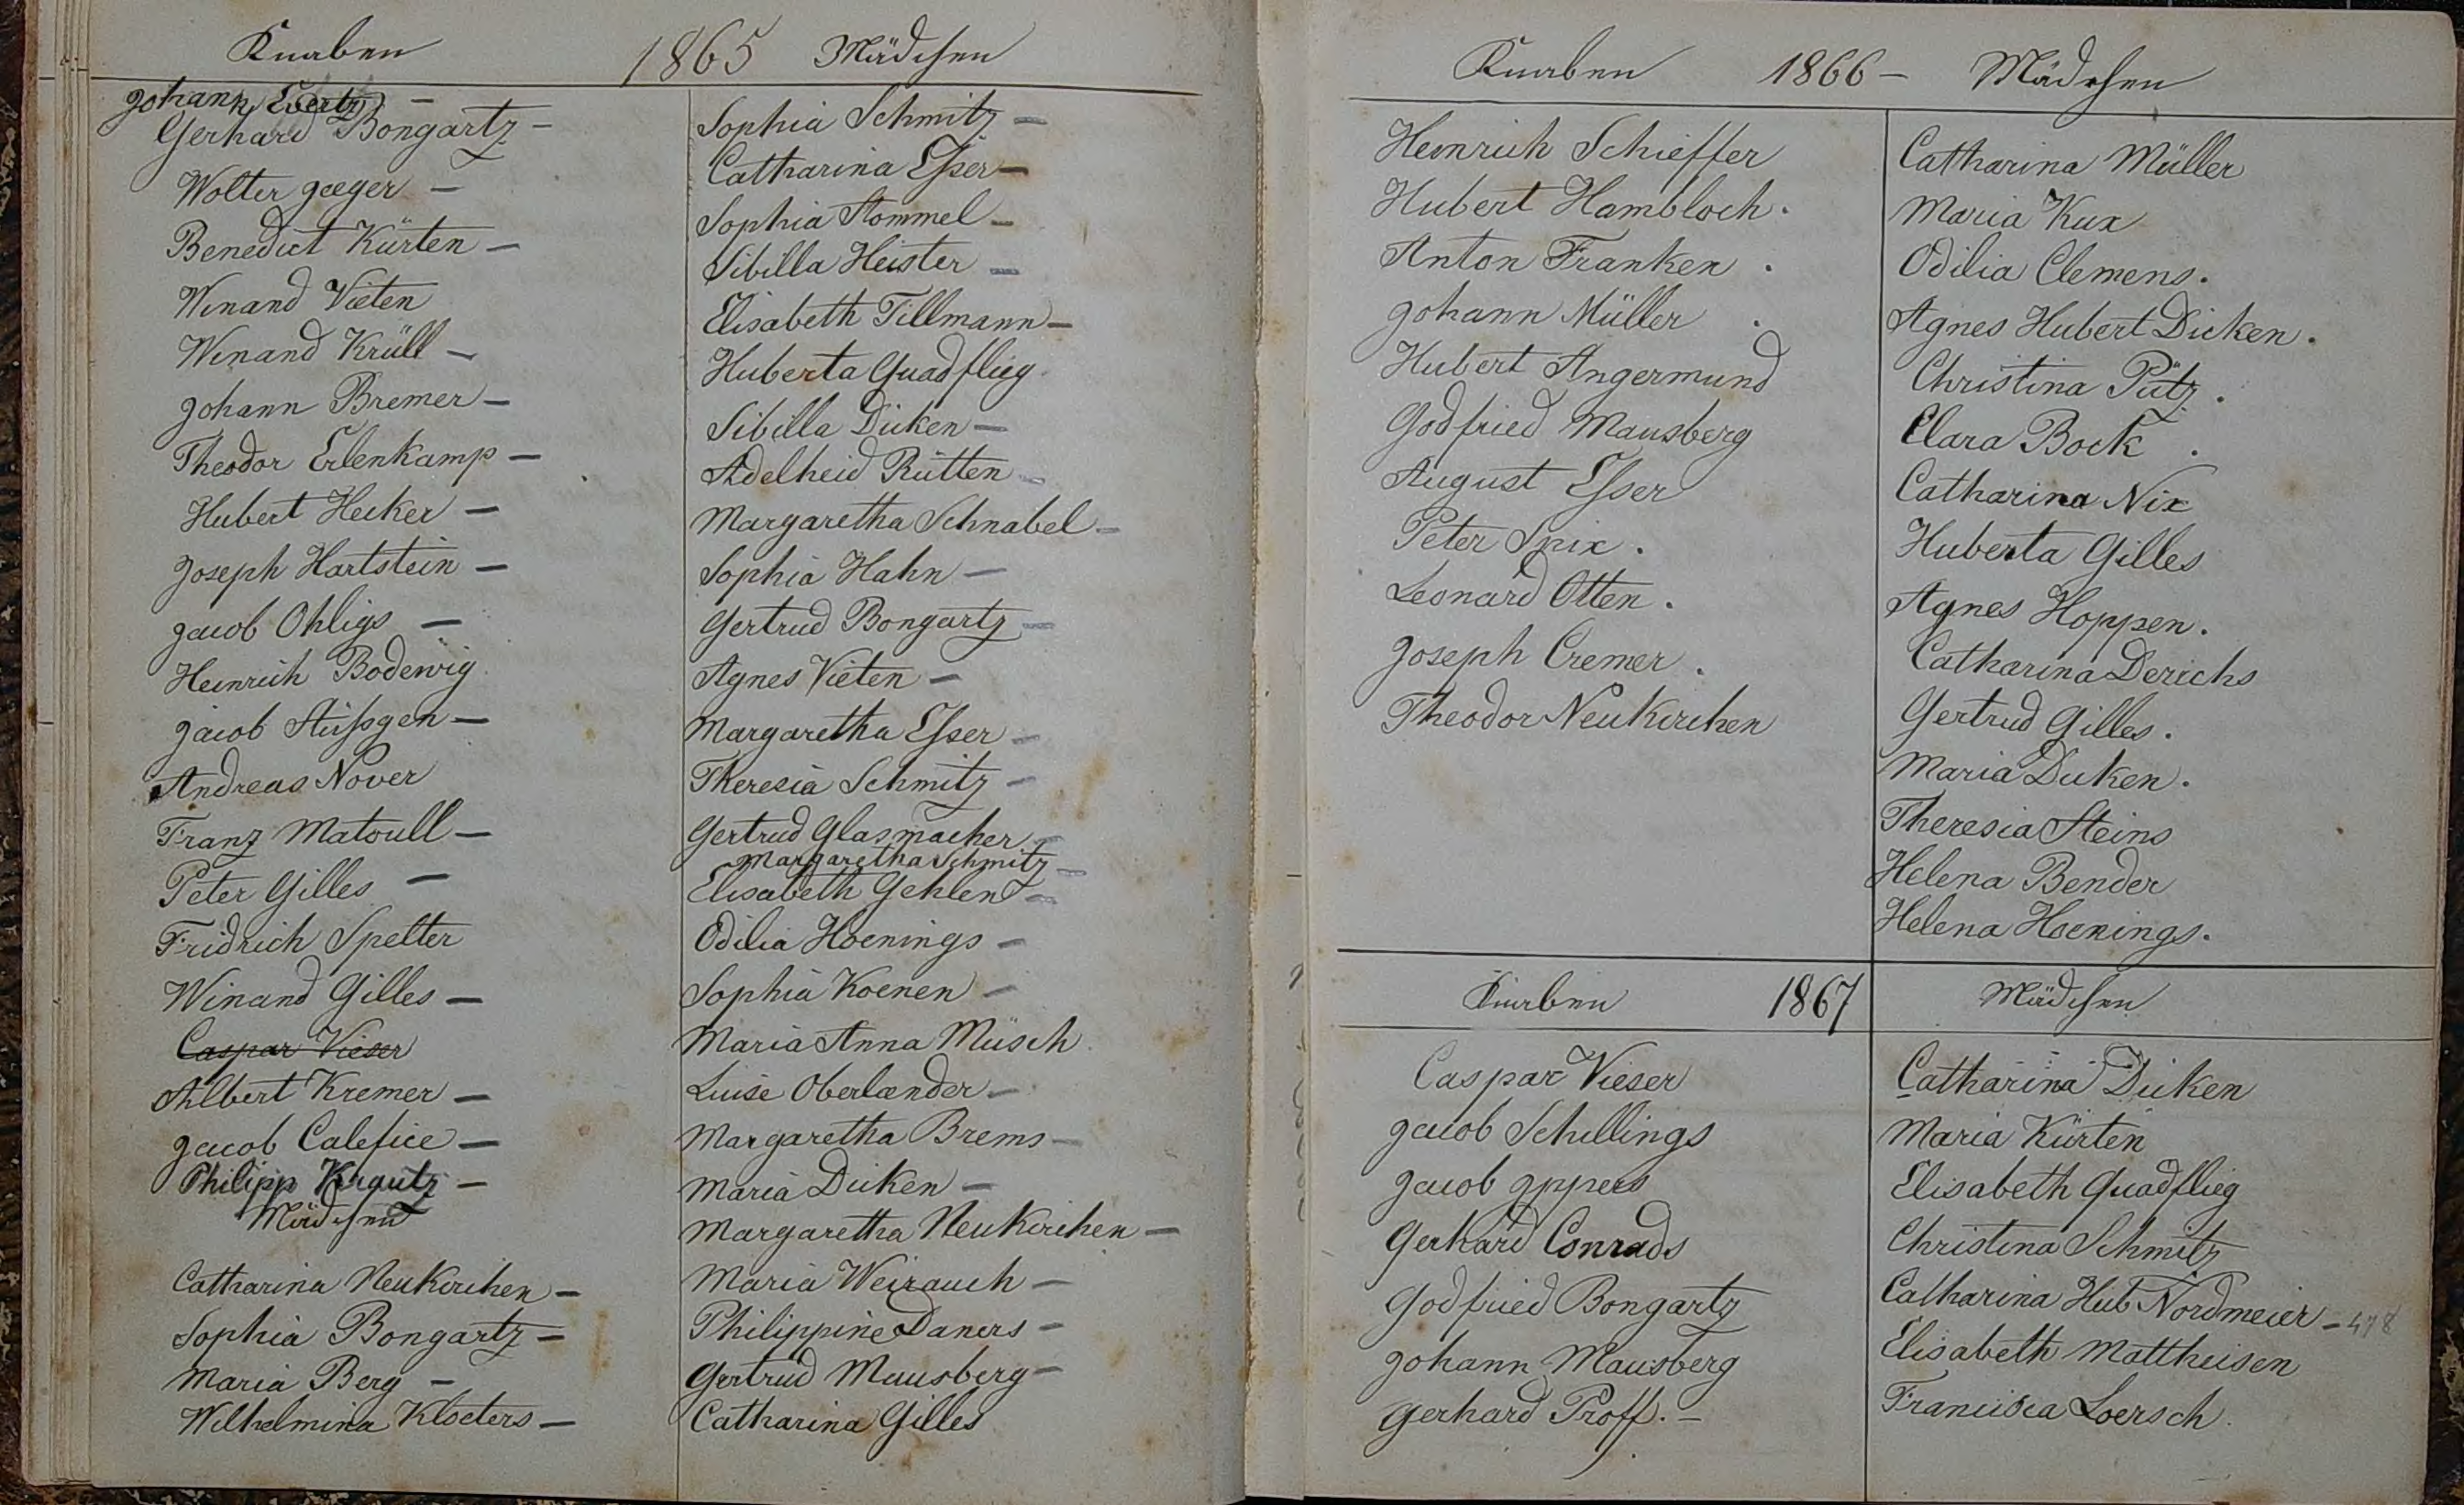 Knaben 1865 Mädchen
Johann Evertz –
Gerhard Bongartz –
Wolter Jaeger –
Benedict Kürten –
Winand Vieten
Winand Krüll –
Johann Bremer –
Theodor Erlenkamp –
Hubert Hecker –
Joseph Hartstein –
Jacob Ohligs –
Heinrich Bodewig
Jacob Stüssgen –
Andreas Nover
Franz Matoull –
Peter Gilles –
Fridrich Spelter
Winand Gilles –
Caspar Vieser
Albert Kremer –
Jacob Calefice –
Philipp Krautz –
Mädchen
Catharina Neukirchen –
Sophia Bongartz –
Maria Berg –
Wilhelmina Kloeters –
Sophia Schmitz –
Catharina Esser –
Sophia Stommel –
Sibilla Heister –
Elisabeth Tillmann –
Huberta Quadflieg
Sibilla Dicken –
Adelheid Rütten –
Margaretha Schnabel –
Sophia Hahn –
Gertrud Bongartz –
Agnes Vieten –
Margaretha Esser –
Theresia Schmitz –
Gertrud Glasmacher –
Margaretha Schmitz –
Elisabeth Gehlen –
Odilia Hoenings –
Sophia Koenen –
Maria Anna Müsch
Luise Oberlaender –
Margaretha Brems –
Maria Dicken –
Margaretha Neukirchen –
Maria Weirauch –
Philippine Daners –
Gertrud Mausberg –
Catharina Gilles
Knaben 1866 – Mädchen
Heinrich Schieffer
Hubert Hambloch.
Anton Franken .
Johann Müller .
Hubert Angermund
Godfried Mausberg
August Esser
Peter Spix .
Leonard Otten .
Joseph Cremer .
Theodor Neukirchen
Catharina Müller
Maria Kux
Odilia Clemens.
Agnes Hubert Dicken .
Christina Pütz .
Clara Bock .
Catharina Nix
Huberta Gilles
Agnes Hoppen .
Catharina Derichs
Gertrud Gilles .
Maria Dicken .
Theresia Steins
Helena Bender
Helena Hoenings.
Knaben 1867 Mädchen
Caspar Vieser
Jacob Schillings
Jacob Jppers
Gerhard Conrads
Godfried Bongartz
Johann Mausberg
Gerhard Proff. –
Catharina Dicken
Maria Kürten
Elisabeth Quadflieg
Christina Schmitz
Catharina Hub Nordmeier – 478
Elisabeth Mattheisen
Francisca Loersch